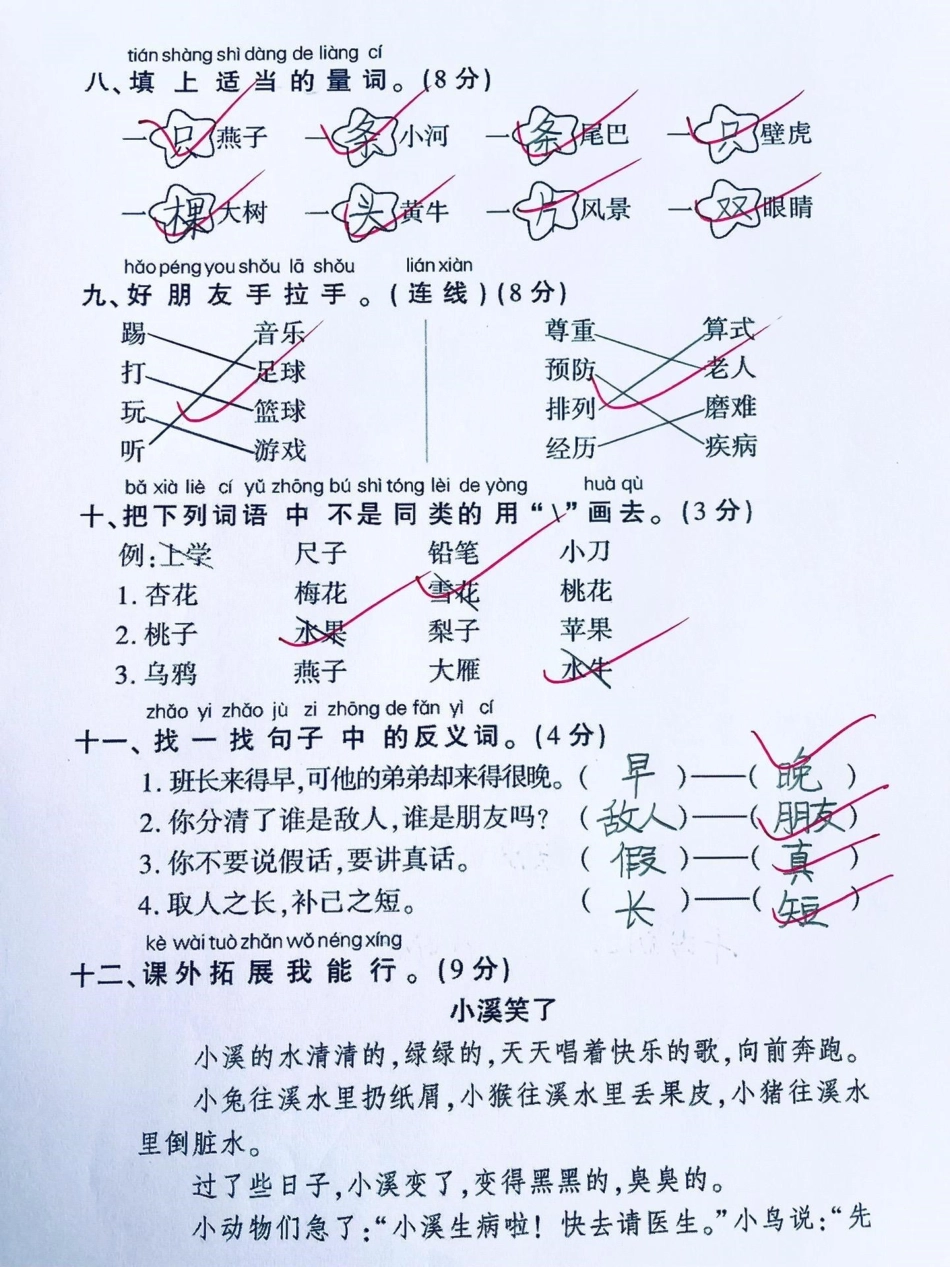 tián shàng shì dàng de liàng cí
八、填上适当的量词。(8分)
一只燕子 一条小河 一条尾巴 一只壁虎
一棵大树 一头黄牛 一片风景 一双眼睛
hǎo péng you shǒu lā shǒu lián xiàn
九、好朋友手拉手。(连线)(8分)
踢 音乐 尊重 算式
打 足球 预防 老人
玩 篮球 排列 磨难
听 游戏 经历 疾病
bǎ xià liè cí yǔ zhōng bú shì tóng lèi de yòng huà qù
十、把下列词语中不是同类的用“\”画去。(3分)
例:上学 尺子 铅笔 小刀
1.杏花 梅花 雪花 桃花
2.桃子 水果 梨子 苹果
3.乌鸦 燕子 大雁 水牛
zhǎo yi zhǎo jù zi zhōng de fǎn yì cí
十一、找一找句子中的反义词。(4分)
1.班长来得早,可他的弟弟却来得很晚。(早)——(晚)
2.你分清了谁是敌人,谁是朋友吗?(敌人)——(朋友)
3.你不要说假话,要讲真话。(假)——(真)
4.取人之长,补己之短。(长)——(短)
kè wài tuò zhǎn wǒ néng xíng
十二、课外拓展我能行。(9分)
小溪笑了
小溪的水清清的,绿绿的,天天唱着快乐的歌,向前奔跑。
小兔往溪水里扔纸屑,小猴往溪水里丢果皮,小猪往溪水
里倒脏水。
过了些日子,小溪变了,变得黑黑的,臭臭的。
小动物们急了:“小溪生病啦!快去请医生。”小鸟说:“先